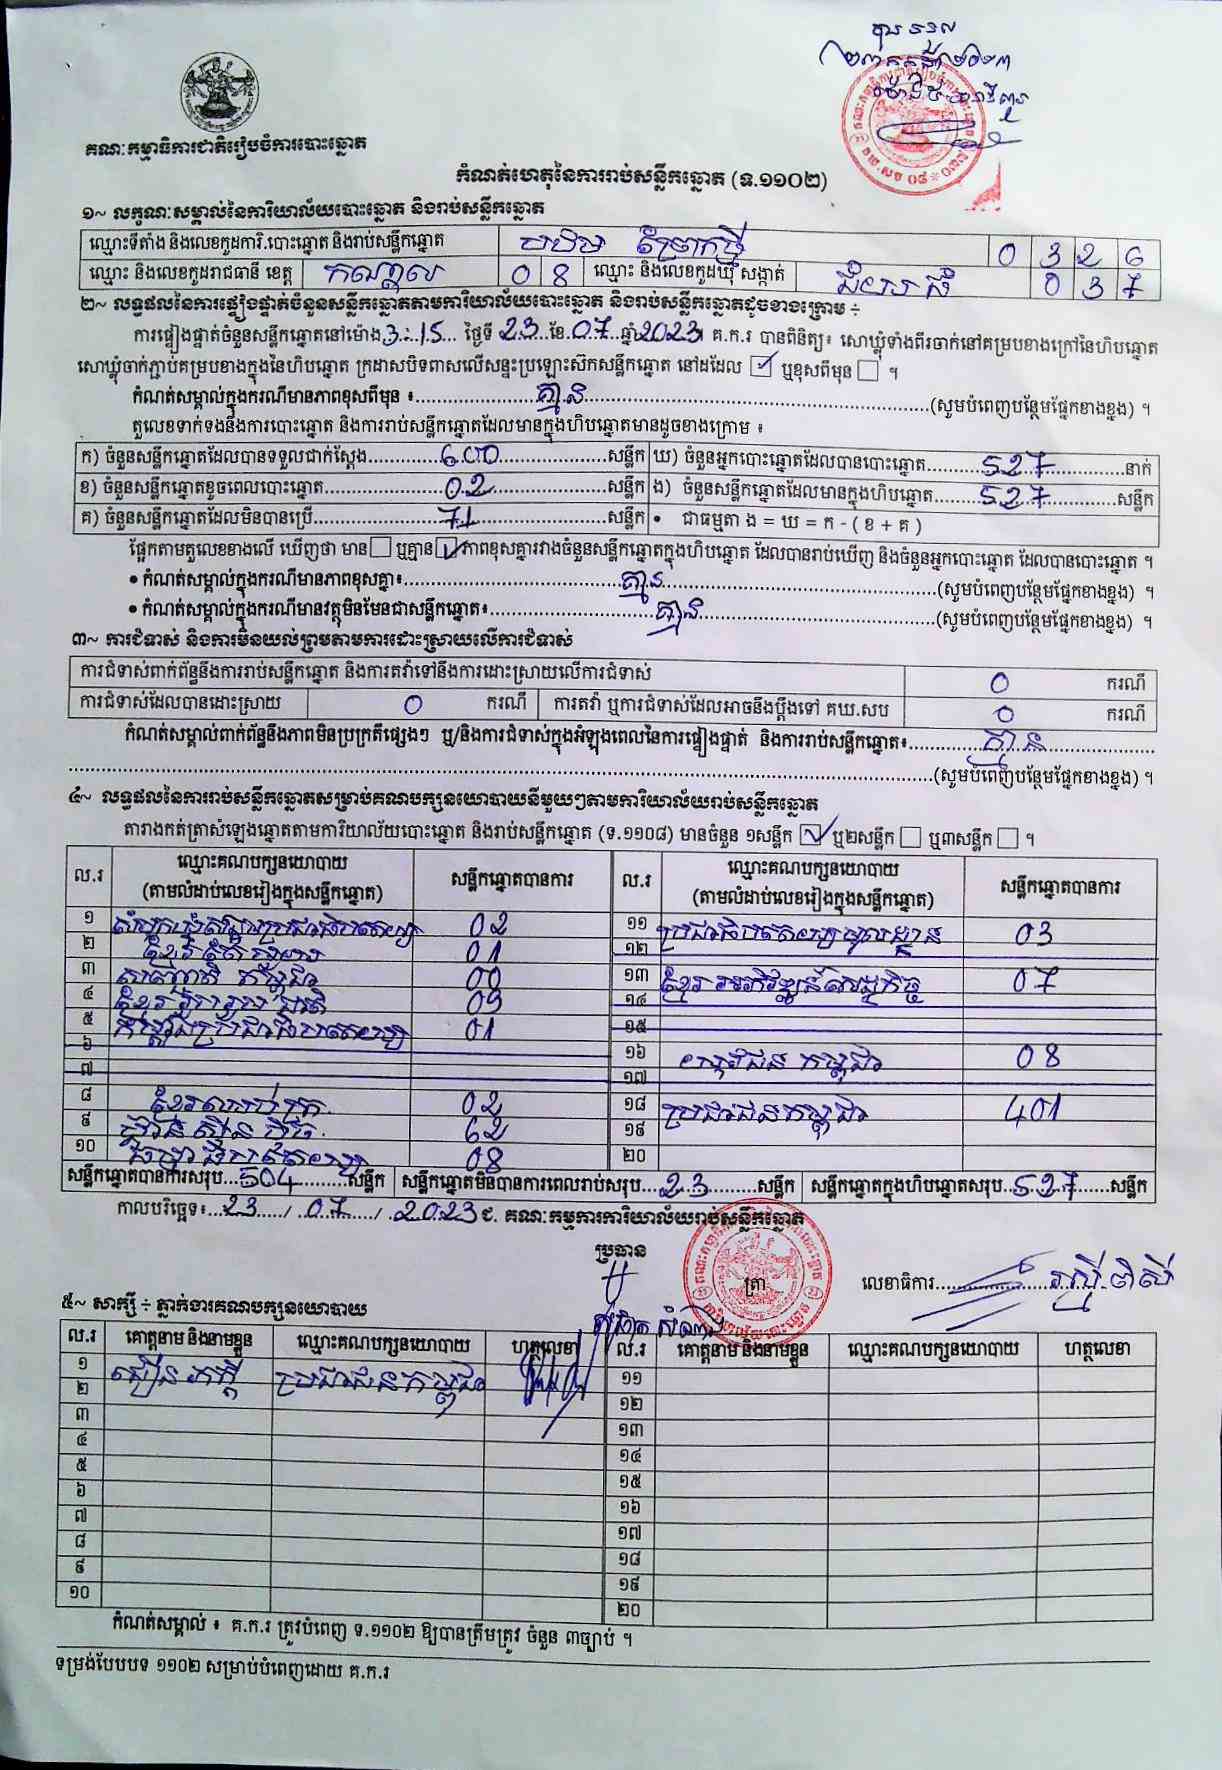 គណៈកម្មាធិការជាតិរៀបចំការបោះឆ្នោត
កំណត់ហេតុនៃការរាប់សន្លឹកឆ្នោត (ទ.១១០២)
១~ លក្ខណៈសម្គាល់នៃការិយាល័យបោះឆ្នោត និងរាប់សន្លឹកឆ្នោត
ឈ្មោះទីតាំង និងលេខកូដការិ.បោះឆ្នោត និងរាប់សន្លឹកឆ្នោត 0 3 2 6
ឈ្មោះ និងលេខកូដរាជធានី ខេត្ត កណ្តាល 0 8 ឈ្មោះ និងលេខកូដឃុំ សង្កាត់ 0 3 7
២~ លទ្ធផលនៃការផ្ទៀងផ្ទាត់ចំនួនសន្លឹកឆ្នោតតាមការិយាល័យបោះឆ្នោត និងរាប់សន្លឹកឆ្នោតដូចខាងក្រោម ៖
ការផ្ទៀងផ្ទាត់ចំនួនសន្លឹកឆ្នោតនៅម៉ោង 3:15 ថ្ងៃទី 23 ខែ 07 ឆ្នាំ 2023 គ.ក.រ បានពិនិត្យ៖ សោឃ្លុំទាំងពីរចាក់នៅគម្របខាងក្រៅនៃហិបឆ្នោត
សោឃ្លុំចាក់ភ្ជាប់គម្របខាងក្នុងនៃហិបឆ្នោត ក្រដាសបិទពាសលើសន្ទះប្រឡោះស៊កសន្លឹកឆ្នោត នៅដដែល ☑ ឬខុសពីមុន ☐ ។
កំណត់សម្គាល់ក្នុងករណីមានភាពខុសពីមុន ៖ គ្មាន (សូមបំពេញបន្ថែមផ្នែកខាងខ្នង) ។
តួលេខទាក់ទងនឹងការបោះឆ្នោត និងការរាប់សន្លឹកឆ្នោតដែលមានក្នុងហិបឆ្នោតមានដូចខាងក្រោម ៖
ក) ចំនួនសន្លឹកឆ្នោតដែលបានទទួលជាក់ស្តែង 600 សន្លឹក ឃ) ចំនួនអ្នកបោះឆ្នោតដែលបានបោះឆ្នោត 527 នាក់
ខ) ចំនួនសន្លឹកឆ្នោតខូចពេលបោះឆ្នោត 02 សន្លឹក ង) ចំនួនសន្លឹកឆ្នោតដែលមានក្នុងហិបឆ្នោត 527 សន្លឹក
គ) ចំនួនសន្លឹកឆ្នោតដែលមិនបានប្រើ 71 សន្លឹក • ជាធម្មតា ង = ឃ = ក - ( ខ + គ )
ផ្អែកតាមតួលេខខាងលើ ឃើញថា មាន ☐ ឬគ្មាន ☑ ភាពខុសគ្នារវាងចំនួនសន្លឹកឆ្នោតក្នុងហិបឆ្នោត ដែលបានរាប់ឃើញ និងចំនួនអ្នកបោះឆ្នោត ដែលបានបោះឆ្នោត ។
• កំណត់សម្គាល់ក្នុងករណីមានភាពខុសគ្នា៖ គ្មាន (សូមបំពេញបន្ថែមផ្នែកខាងខ្នង) ។
• កំណត់សម្គាល់ក្នុងករណីមានវត្ថុមិនមែនជាសន្លឹកឆ្នោត៖ គ្មាន (សូមបំពេញបន្ថែមផ្នែកខាងខ្នង) ។
៣~ ការជំទាស់ និងការមិនយល់ព្រមតាមការដោះស្រាយលើការជំទាស់
ការជំទាស់ពាក់ព័ន្ធនឹងការរាប់សន្លឹកឆ្នោត និងការតវ៉ាទៅនឹងការដោះស្រាយលើការជំទាស់ 0 ករណី
ការជំទាស់ដែលបានដោះស្រាយ 0 ករណី ការតវ៉ា ឬការជំទាស់ដែលអាចនឹងប្តឹងទៅ គឃ.សប 0 ករណី
កំណត់សម្គាល់ពាក់ព័ន្ធនឹងភាពមិនប្រក្រតីផ្សេងៗ ឬ/និងការជំទាស់ក្នុងអំឡុងពេលនៃការផ្ទៀងផ្ទាត់ និងការរាប់សន្លឹកឆ្នោត៖ គ្មាន
(សូមបំពេញបន្ថែមផ្នែកខាងខ្នង) ។
៤~ លទ្ធផលនៃការរាប់សន្លឹកឆ្នោតសម្រាប់គណបក្សនយោបាយនីមួយៗតាមការិយាល័យរាប់សន្លឹកឆ្នោត
តារាងកត់ត្រាសំឡេងឆ្នោតតាមការិយាល័យបោះឆ្នោត និងរាប់សន្លឹកឆ្នោត (ទ.១១០៨) មានចំនួន ១សន្លឹក ☑ ឬ២សន្លឹក ☐ ឬ៣សន្លឹក ☐ ។
ល.រ ឈ្មោះគណបក្សនយោបាយ (តាមលំដាប់លេខរៀងក្នុងសន្លឹកឆ្នោត) សន្លឹកឆ្នោតបានការ ល.រ ឈ្មោះគណបក្សនយោបាយ (តាមលំដាប់លេខរៀងក្នុងសន្លឹកឆ្នោត) សន្លឹកឆ្នោតបានការ
១ សំបុកឃ្មុំសង្គមប្រជាធិបតេយ្យ 02 ១១ ប្រជាធិបតេយ្យមូលដ្ឋាន 03
២ 01 ១២
៣ 00 ១៣ ខ្មែរអភិវឌ្ឍន៍សេដ្ឋកិច្ច 07
៤ ខ្មែររួបរួមជាតិ 09 ១៤
៥ កម្លាំងប្រជាធិបតេយ្យ 01 ១៥
៦ ១៦ យុវជនកម្ពុជា 08
៧ ១៧
៨ ខ្មែរឈប់ក្រ 02 ១៨ ប្រជាជនកម្ពុជា 401
៩ ហ៊្វុនស៊ិនប៉ិច 62 ១៩
១០ ធម្មាធិបតេយ្យ 08 ២០
សន្លឹកឆ្នោតបានការសរុប 504 សន្លឹក សន្លឹកឆ្នោតមិនបានការពេលរាប់សរុប 23 សន្លឹក សន្លឹកឆ្នោតក្នុងហិបឆ្នោតសរុប 527 សន្លឹក
កាលបរិច្ឆេទ៖ 23 / 07 / 2023 ជ. គណៈកម្មការការិយាល័យរាប់សន្លឹកឆ្នោត
ប្រធាន
ត្រា
លេខាធិការ
៥~ សាក្សី ៖ ភ្នាក់ងារគណបក្សនយោបាយ
ល.រ គោត្តនាម និងនាមខ្លួន ឈ្មោះគណបក្សនយោបាយ ហត្ថលេខា ល.រ គោត្តនាម និងនាមខ្លួន ឈ្មោះគណបក្សនយោបាយ ហត្ថលេខា
១ ប្រជាជនកម្ពុជា ១១
២ ១២
៣ ១៣
៤ ១៤
៥ ១៥
៦ ១៦
៧ ១៧
៨ ១៨
៩ ១៩
១០ ២០
កំណត់សម្គាល់ ៖ គ.ក.រ ត្រូវបំពេញ ទ.១១០២ ឱ្យបានត្រឹមត្រូវ ចំនួន ៣ច្បាប់ ។
ទម្រង់បែបបទ ១១០២ សម្រាប់បំពេញដោយ គ.ក.រ